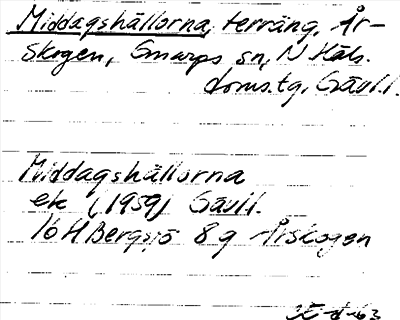 Middagshällorna, terräng, År-
skogen, Gnarps sn, N Häls.
doms.tg, Gävl.l.
Middagshällorna
ek (1959) Gävl.l.
16H Bergsjö 8g Årskogen